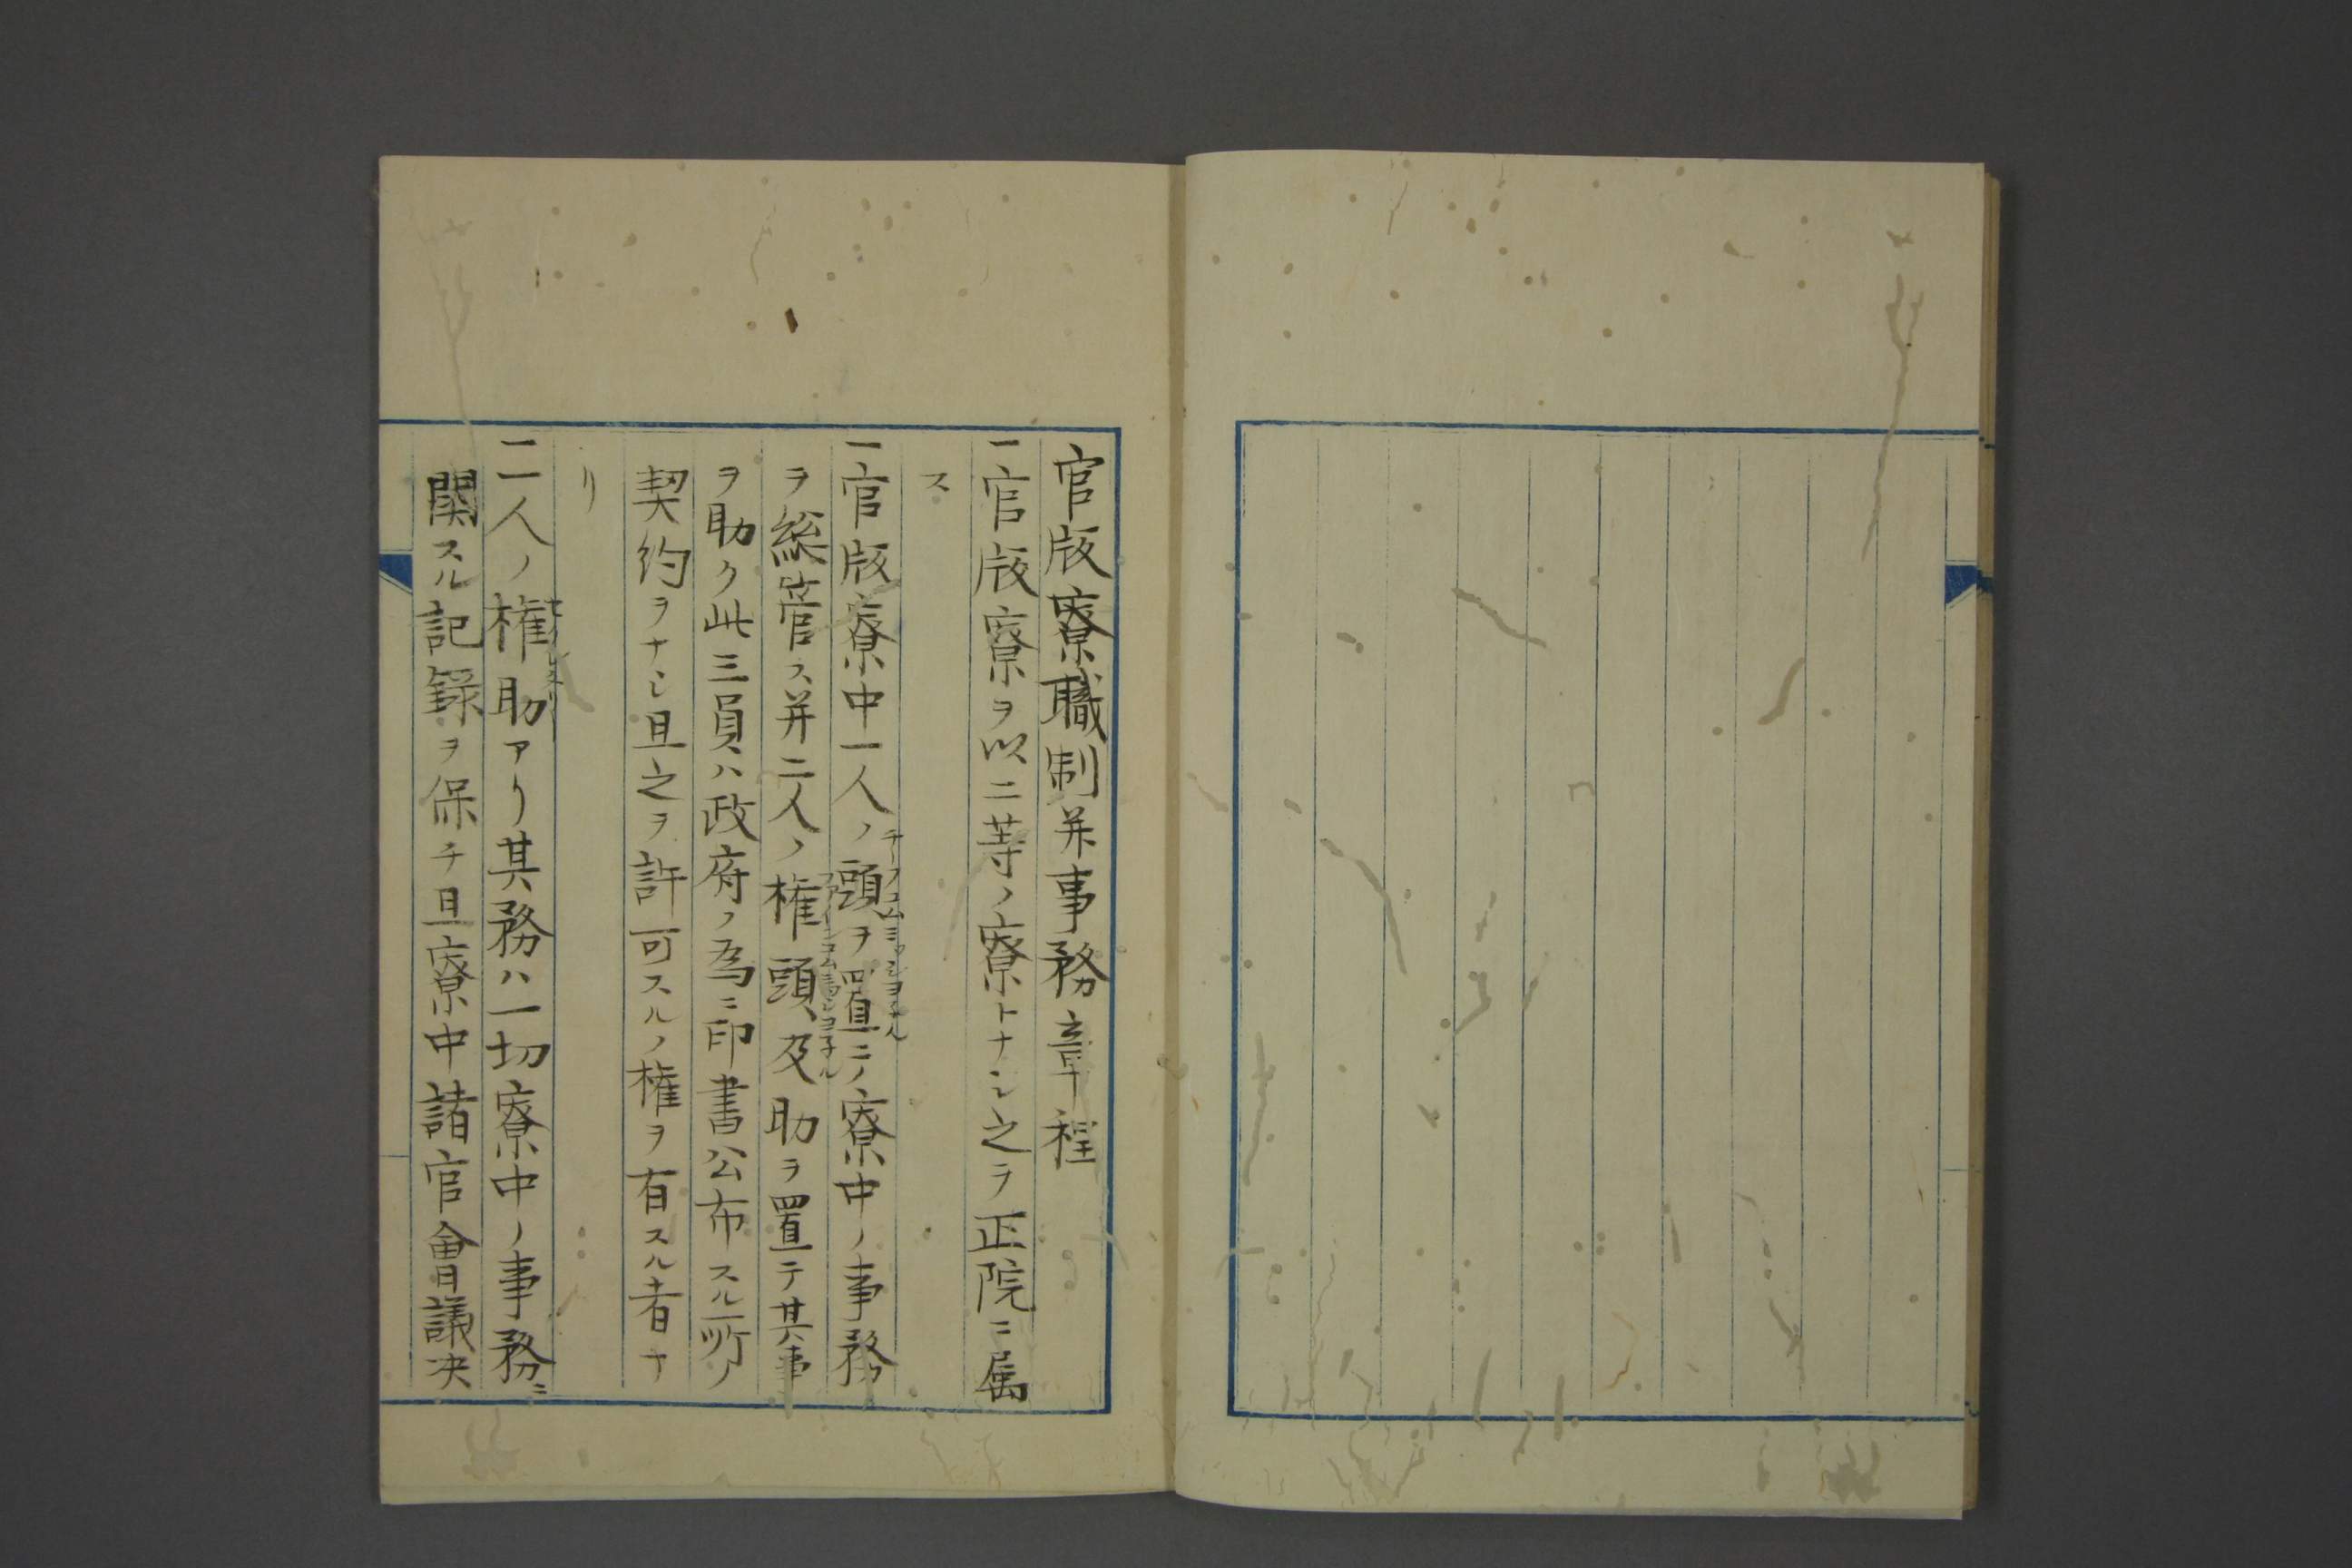 官版寮職制并事務章程
一官版寮ヲ以二等ノ寮トナシ之ヲ正院ニ属
ス
一官版寮中一人ノ頭ヲ置ニノ寮中ノ事務
チーフコムミッシヨネル
ヲ総管ス并二人ノ権頭及助ヲ置テ其事
コムミッシヨネル
ヲ助ク此三員ハ政府ノ為ニ印書公布スル所ノ
契約ヲナシ且之ヲ許可スルノ権ヲ有スル者ナ
リ
二人ノ権助アリ其務ハ一切寮中ノ事務ニ
関スル記録ヲ保チ且寮中諸官會議决